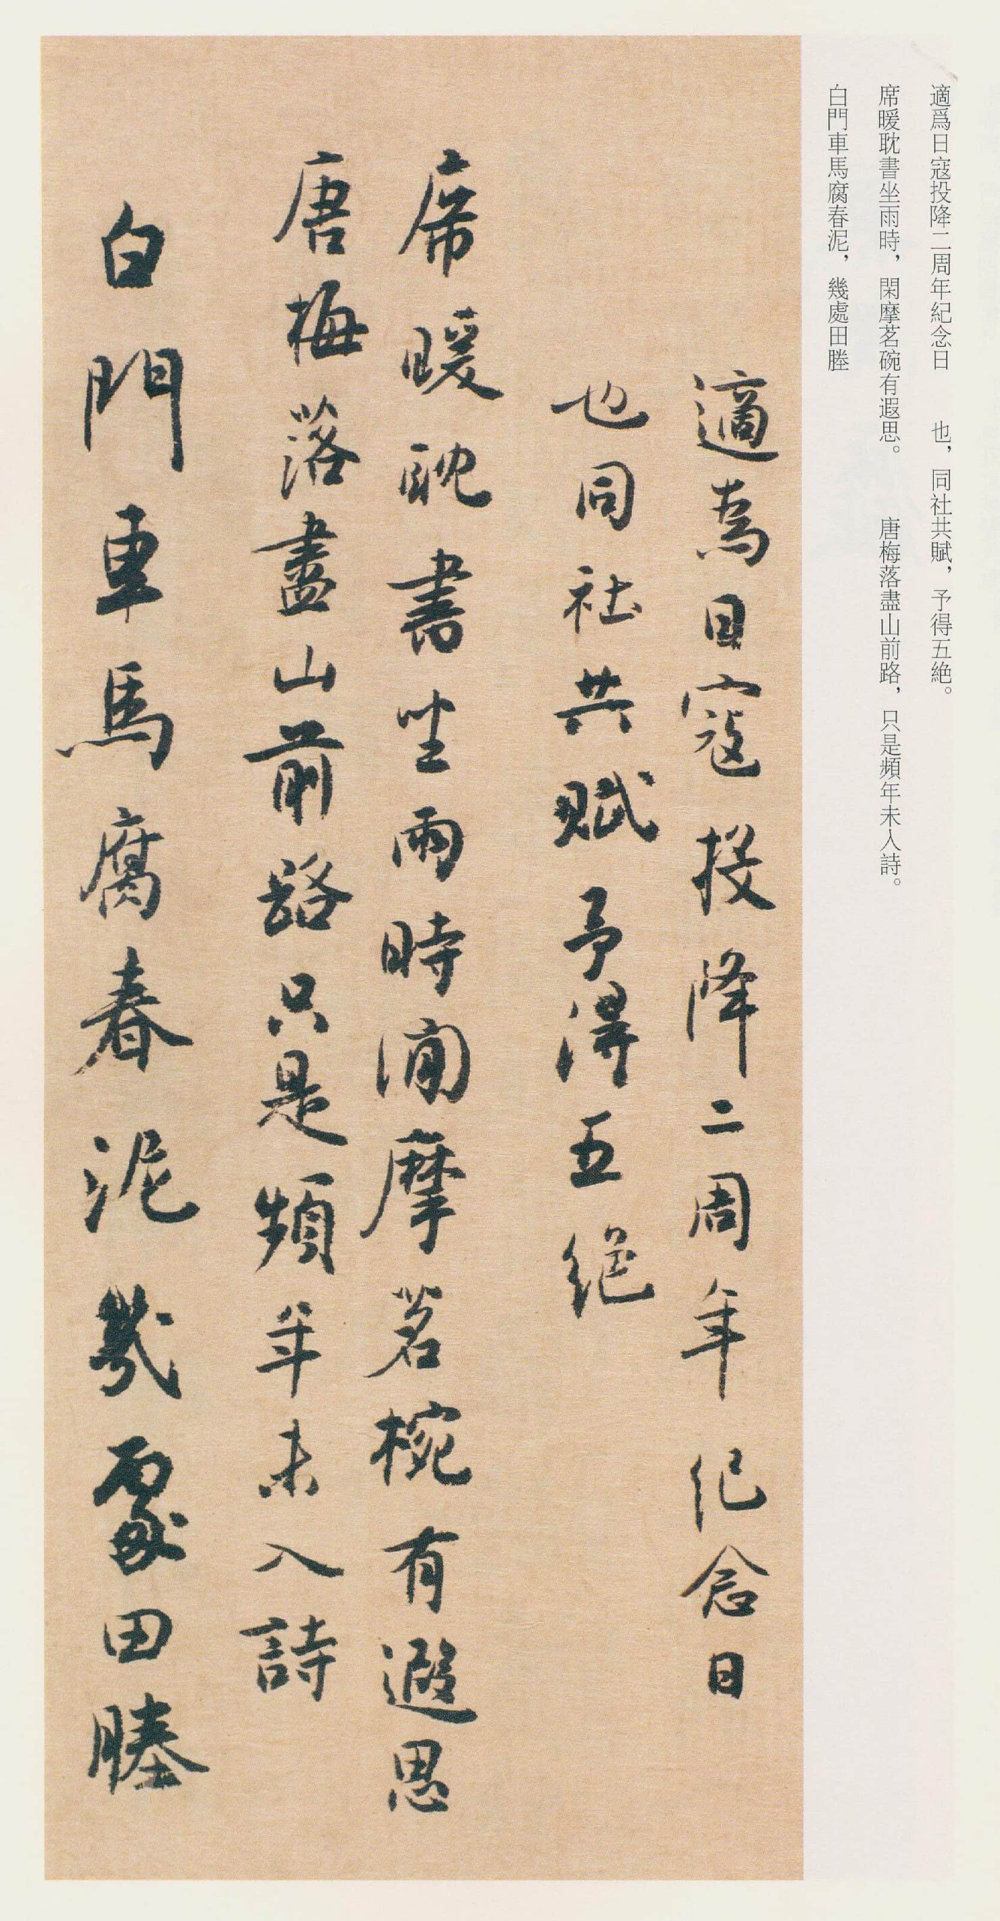 適爲日寇投降二周年紀念日　也，同社共賦，予得五絶。
席暖耽書坐雨時，閑摩茗碗有遐思。　唐梅落盡山前路，只是頻年未入詩。
白門車馬腐春泥，幾處田塍
適為日寇投降二周年纪念日
也同社共賦予得五絕
席暖耽書坐雨時閒摩茗椀有遐思
唐梅落盡山前路只是頻年未入詩
白門車馬腐春泥幾處田塍